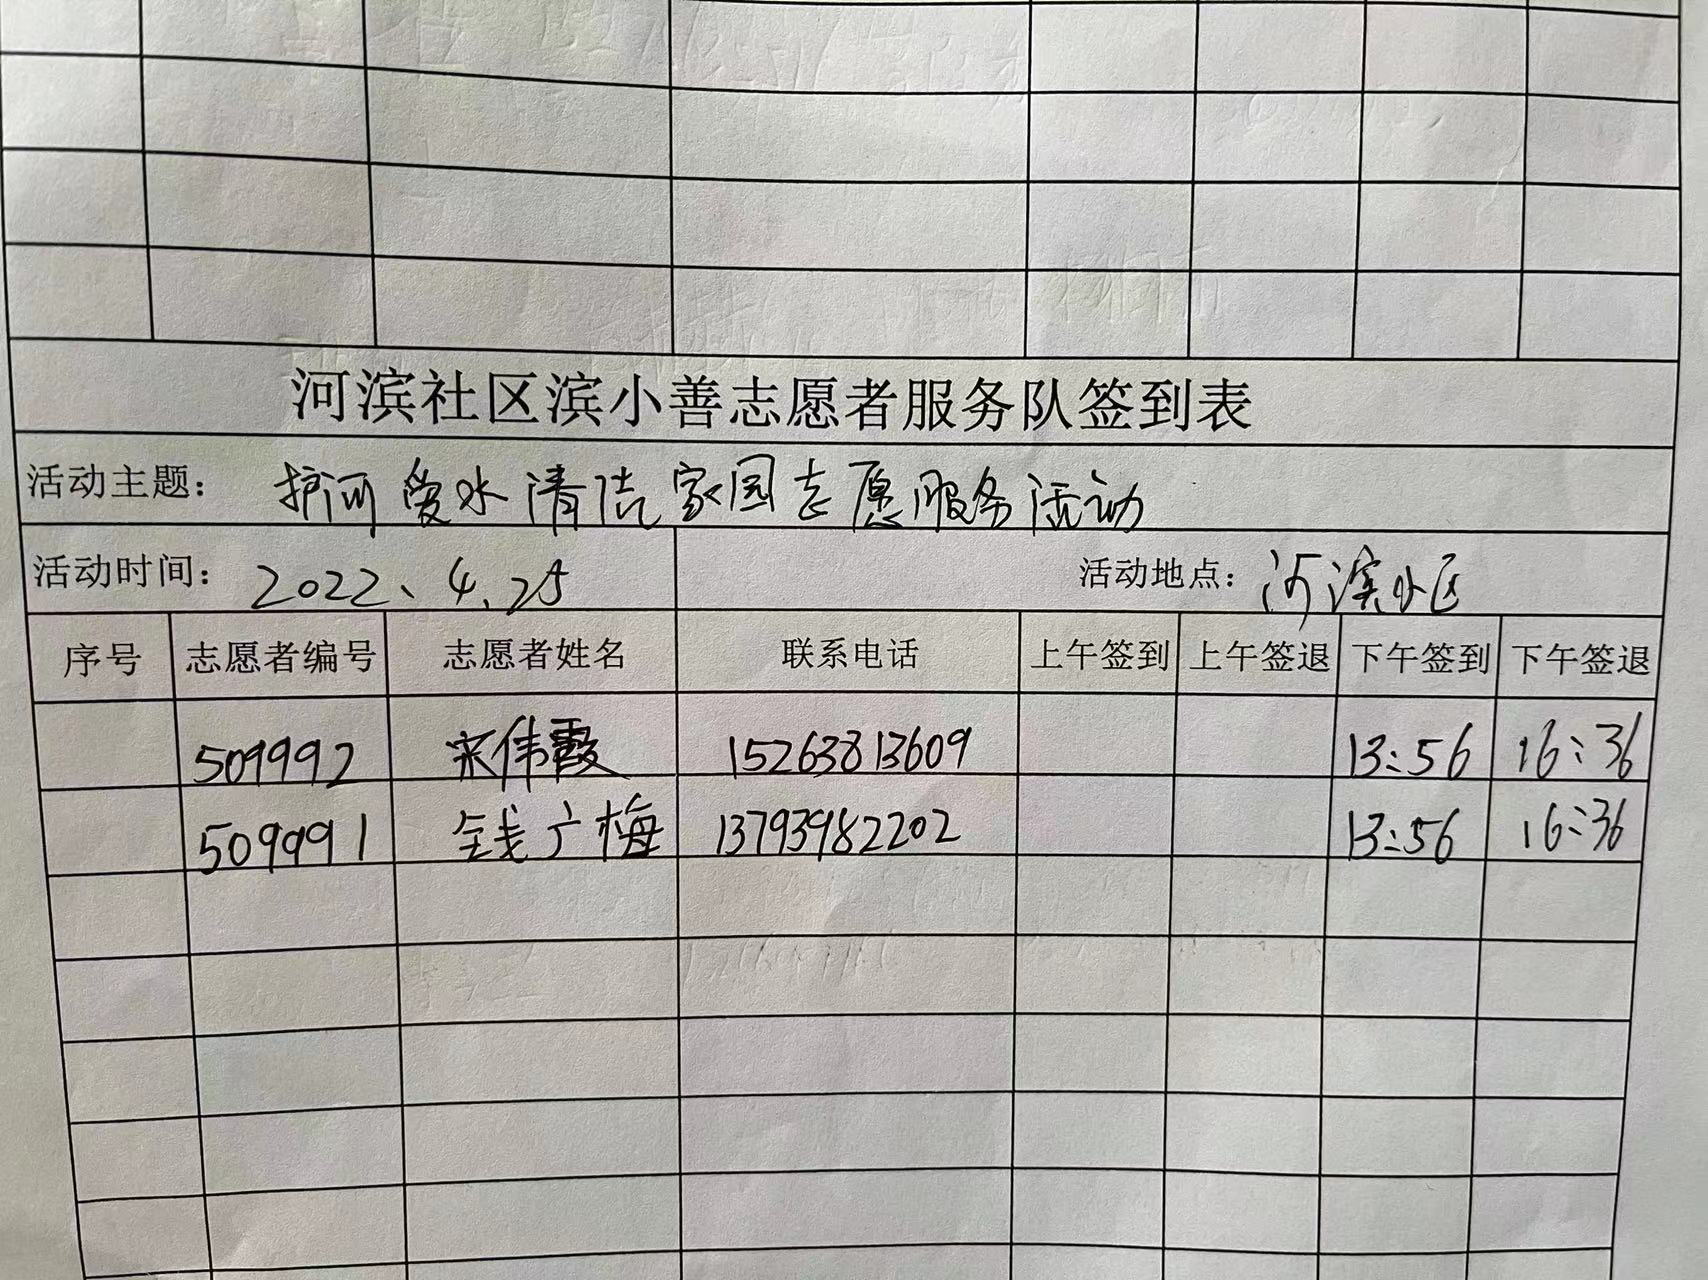 河滨社区滨小善志愿者服务队签到表
活动主题： 护河爱水清洁家园志愿服务活动
活动时间： 2022、4.25 活动地点： 河滨小区
序号 志愿者编号 志愿者姓名 联系电话 上午签到 上午签退 下午签到 下午签退
509992 宋伟霞 15263813609 13:56 16:36
509991 钱广梅 13793982202 13:56 16:36